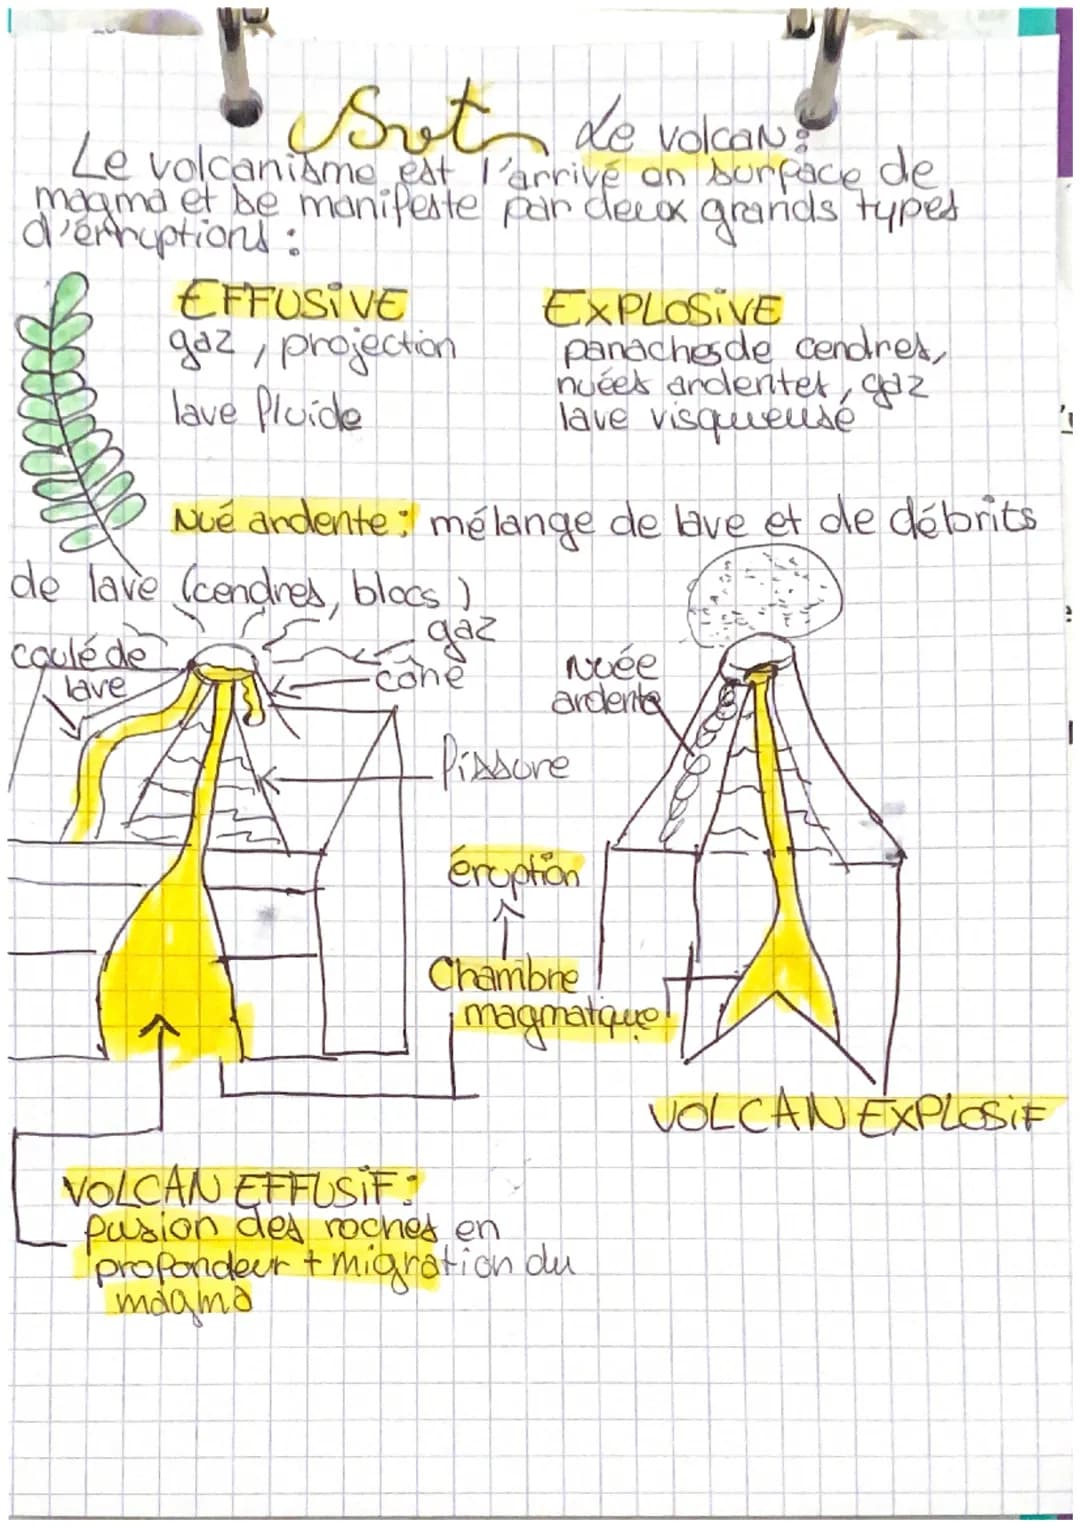 Svt Le volcan :
Le volcanisme est l'arrivé en surface de
magma et se manifeste par deux grands types
d'erruptions :
EFFUSIVE
gaz, projection
lave fluide
EXPLOSIVE
panaches de cendres,
nuées ardentes, gaz
lave visqueuse
Nué ardente : mélange de lave et de débrits
de lave (cendres, blocs)
gaz
coulé de
lave
cône
fissure
Nuée
ardente
éruption
Chambre
magmatique
VOLCAN EXPLOSIF
VOLCAN EFFUSIF :
fusion des roches en
profondeur + migration du
magma